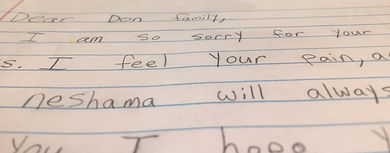 Dear Don family,
I am so sorry for your
s. I feel your pain, a
neshama will always
you I hope y